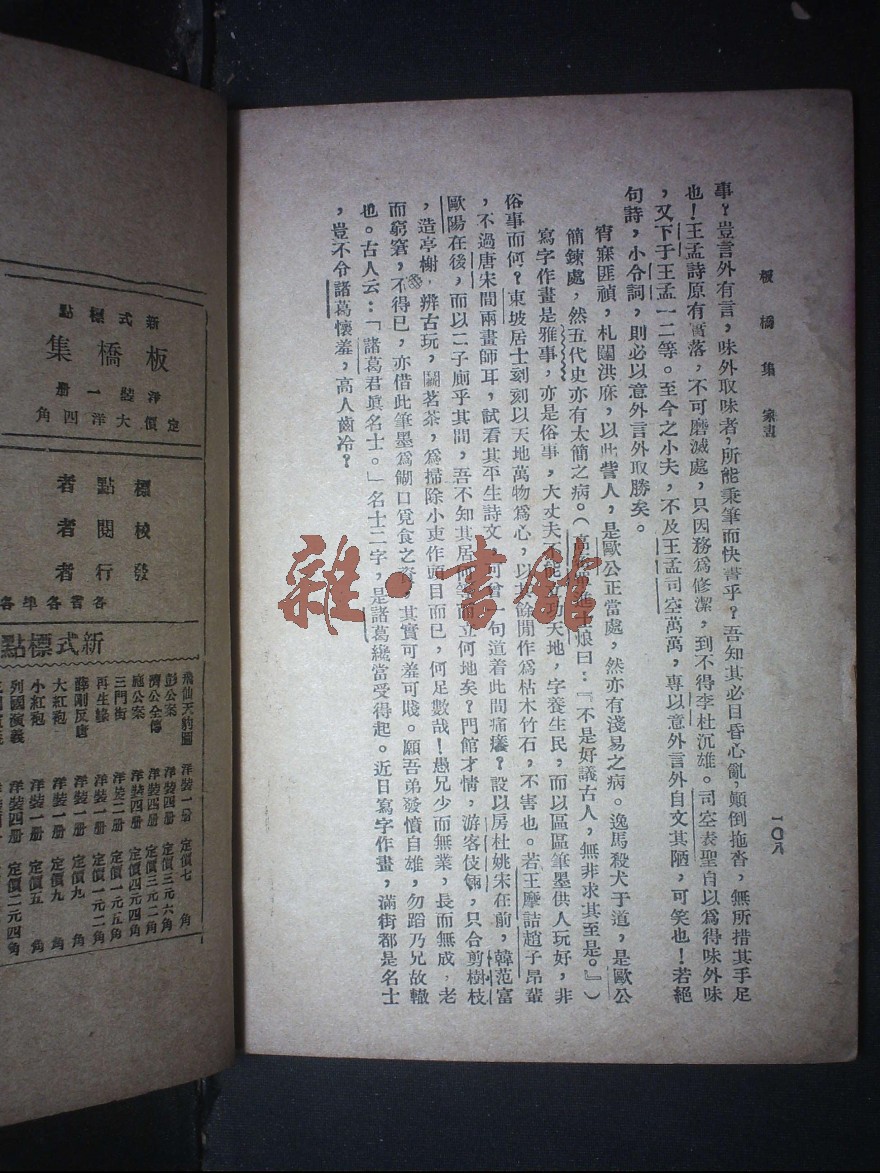 板橋集 家書
一〇八
事？豈言外有言，味外取味者，所能秉筆而快書乎？吾知其必目昏心亂，顛倒拖沓，無所措其手足
也！王孟詩原有實落，不可磨滅處，只因務爲修潔，到不得李杜沉雄。司空表聖自以爲得味外味
，又下于王孟一二等。至今之小夫，不及王孟司空萬萬，專以意外言外自文其陋，可笑也！若絕
句詩，小令詞，則必以意外言外取勝矣。
宵寐匪禎，札闥洪庥，以此訾人，是歐公正當處，然亦有淺易之病。逸馬殺犬于道，是歐公
簡鍊處，然五代史亦有太簡之病。（烺曰：『不是好議古人，無非求其至是。』）
寫字作畫是雅事，亦是俗事，大丈夫不能立功天地，字養生民，而以區區筆墨供人玩好，非
俗事而何？東坡居士刻刻以天地萬物爲心，以其餘閒作爲枯木竹石，不害也。若王摩詰趙子昂輩
，不過唐宋間兩畫師耳，試看其平生詩文，可曾一句道着此間痛癢？設以房杜姚宋在前，韓范富
歐陽在後，而以二子廁乎其間，吾不知其居何等而立何地矣？門館才情，游客伎倆，只合剪樹枝
，造亭榭，辨古玩，鬬茗茶，爲掃除小吏作頭目而已，何足數哉！愚兄少而無業，長而無成，老
而窮窘，不得已，亦借此筆墨爲餬口覓食之資，其實可羞可賤。願吾弟發憤自雄，勿蹈乃兄故轍
也。古人云：「諸葛君眞名士。」名士二字，是諸葛纔當受得起。近日寫字作畫，滿街都是名士
，豈不令諸葛懷羞，高人齒冷？
雜·書館
新式標點
板橋集
洋裝一册
定價大洋四角
標點者
校閱者
發行者
各省各埠各
新式標點
飛仙天豹圖 洋裝一册 定價七角
彭公案 洋裝四册 定價三元六角
濟公全傳 洋裝四册 定價三元二角
施公案 洋裝四册 定價四元四角
三門街 洋裝二册 定價一元五角
再生緣 洋裝一册 定價一元二角
薛剛反唐 洋裝一册 定價九角
大紅袍 洋裝一册 定價九角
小紅袍 洋裝一册 定價五角
列國演義 洋裝四册 定價二元四角